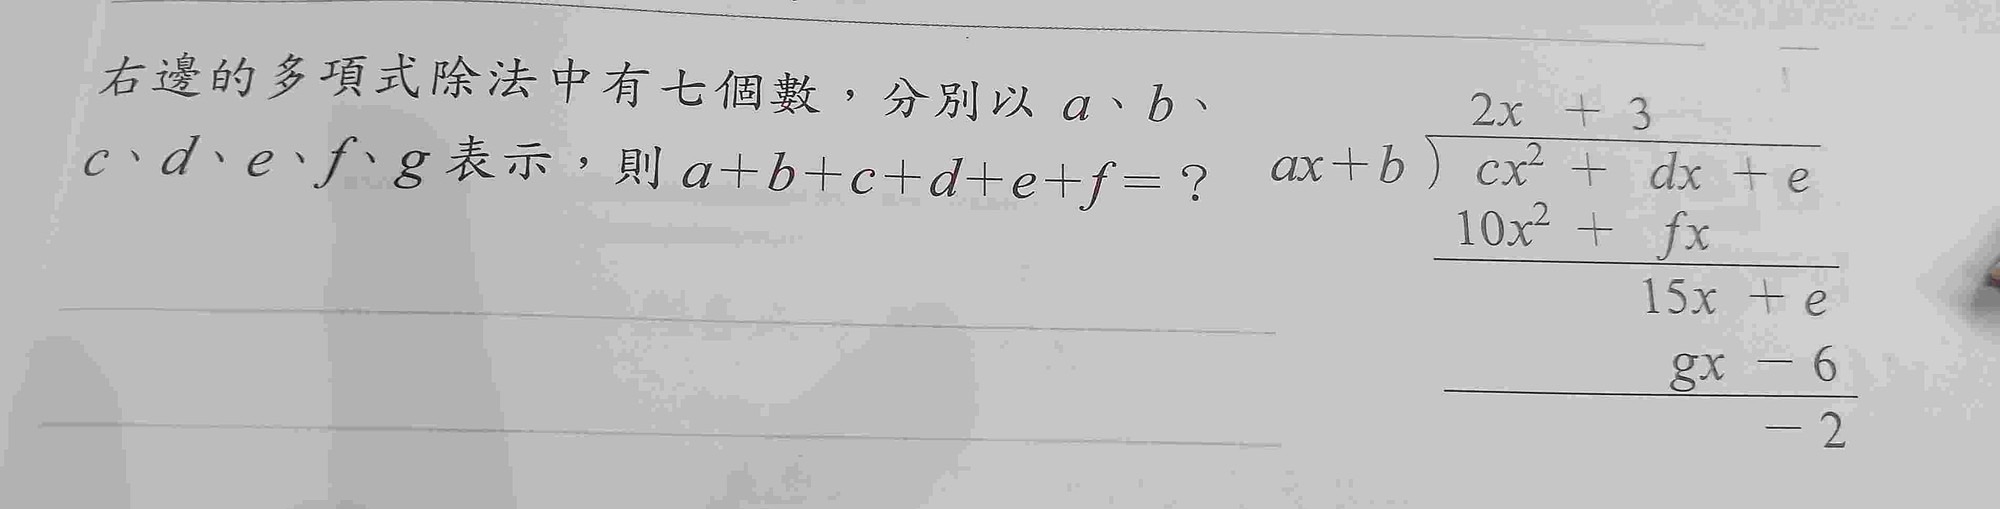 右邊的多項式除法中有七個數，分別以 a、b、
c、d、e、f、g 表示，則 a＋b＋c＋d＋e＋f＝？
2x ＋ 3
ax＋b ) cx² ＋ dx ＋ e
10x² ＋ fx
15x ＋ e
gx － 6
－ 2